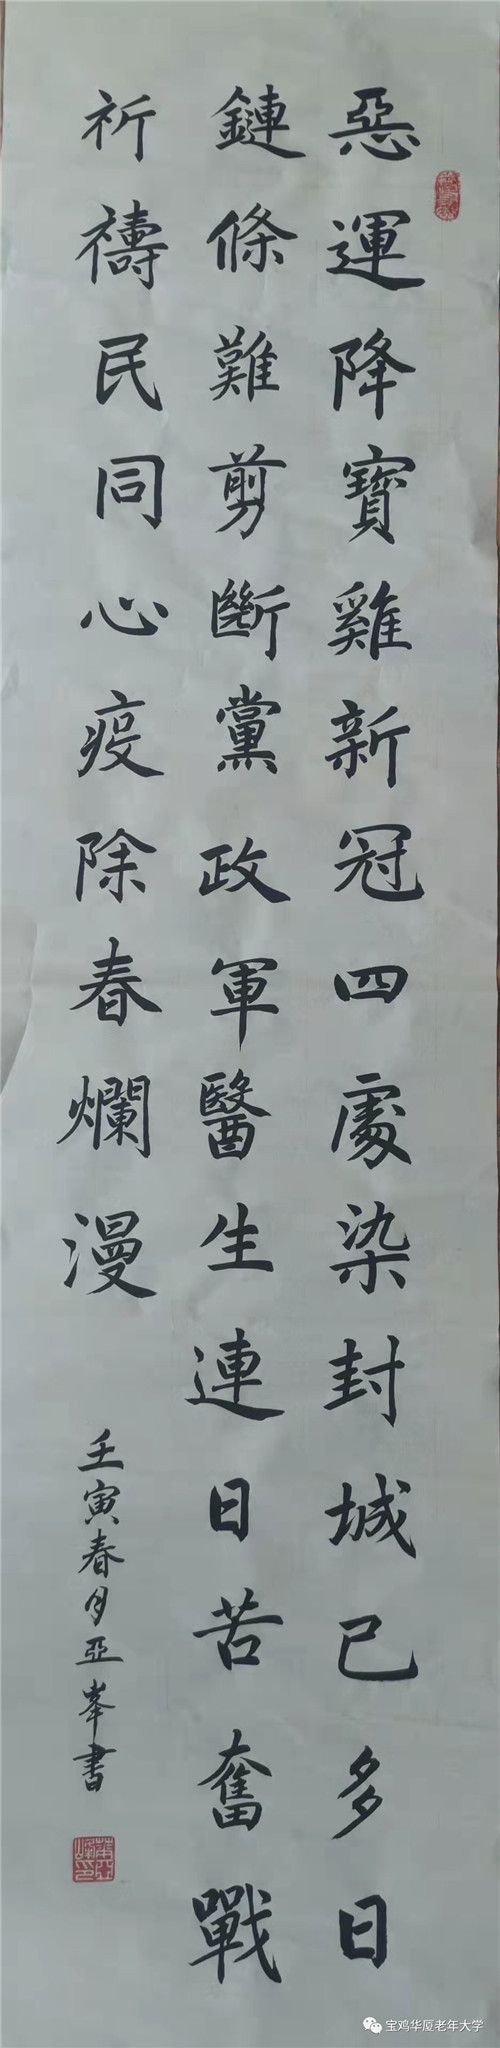 惡運降寶雞新冠四處染封城已多日
鏈條難剪斷黨政軍醫生連日苦奮戰
祈禱民同心疫除春爛漫
壬寅春月亞峯書
宝鸡华厦老年大学